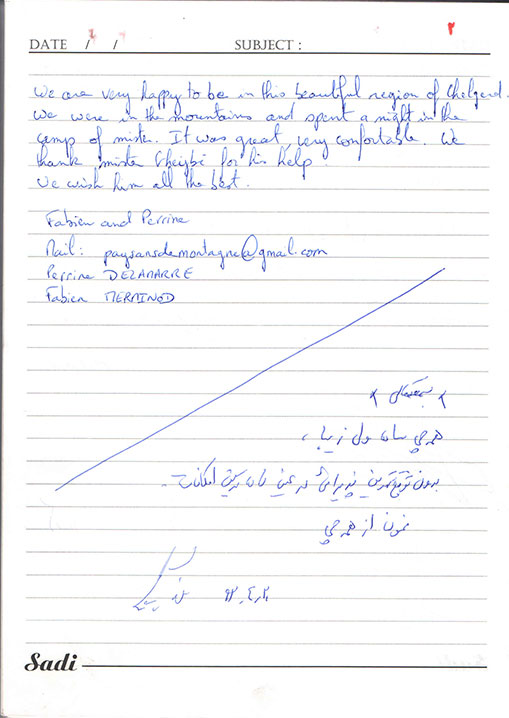 ۳
DATE / / SUBJECT :
We are very happy to be in this beautiful region of Chelgerd.
We were in the mountains and spent a night in the
camp of mister. It was great, very confortable. We
thank mister Gheybi for his help.
We wish him all the best.
Fabien and Perrine
Mail: paysansdemontagne@gmail.com
Perrine DELAMARRE
Fabien MERMINOD
همه چی ساده ولی زیبا،
بدون توقع پذیرائی در عین
ممنون از همه چی
Sadi